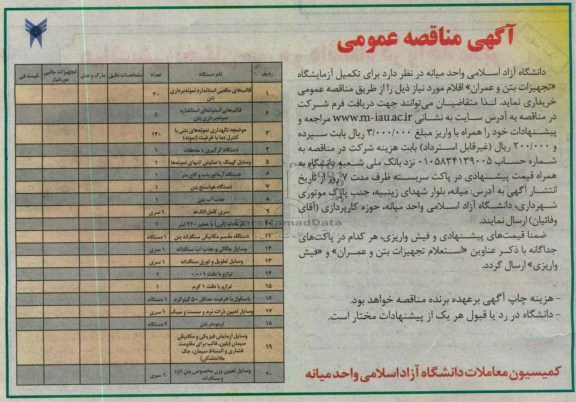 آگهی مناقصه عمومی
دانشگاه آزاد اسلامی واحد میانه در نظر دارد برای تکمیل آزمایشگاه
«تجهیزات بتن و عمران» اقلام مورد نیاز ذیل را از طریق مناقصه عمومی
خریداری نماید. لذا متقاضیان می‌توانند جهت دریافت فرم شرکت
در مناقصه به آدرس سایت به نشانی www.m-iau.ac.ir مراجعه و
پیشنهادات خود را همراه با واریز مبلغ ۳/۰۰۰/۰۰۰ ریال بابت سپرده
و ۲۰۰/۰۰۰ ریال (غیرقابل استرداد) بابت هزینه شرکت در مناقصه به
شماره حساب ۰۱۰۵۸۳۴۱۳۹۰۰۵ نزد بانک ملی شعبه دانشگاه به
همراه قیمت پیشنهادی در پاکت سربسته ظرف مدت ۷ روز از تاریخ
انتشار آگهی به آدرس: میانه، بلوار شهدای زینبیه، جنب پارک موتوری
شهرداری، دانشگاه آزاد اسلامی واحد میانه، حوزه کارپردازی (آقای
وفائیان) ارسال نمایند.
ضمنا قیمت‌های پیشنهادی و فیش واریزی، هر کدام در پاکت‌های
جداگانه با ذکر عناوین «استعلام تجهیزات بتن و عمران» و «فیش
واریزی» ارسال گردد.
- هزینه چاپ آگهی برعهده برنده مناقصه خواهد بود.
- دانشگاه در رد یا قبول هر یک از پیشنهادات مختار است.
کمیسیون معاملات دانشگاه آزاد اسلامی واحد میانه
ردیف نام دستگاه تعداد مشخصات دقیق مارک و مدل تجهیزات جانبی موردنیاز قیمت فی
۱ قالب‌های مکعبی استاندارد نمونه‌برداری بتن ۳۰
۲ قالب‌های استوانه‌ای استاندارد نمونه‌برداری بتن ۵
۳ حوضچه نگهداری نمونه‌های بتنی با کنترل دما با ظرفیت (نمونه) ۱۴۰
۴ دستگاه کرگیری با متعلقات ۱
۵ وسایل کپینگ یا نمایش انتهای نمونه‌ها ۱
۶ دستگاه آرماتوریاب و کاورمتر ۱
۷ دستگاه هواسنج بتن ۱
۸ جذب آب بتن ۱
۹ سری کامل الک‌ها ۱ سری
۱۰
۱۱ دستگاه مقسم مکانیکی سنگدانه بتن ۱ دستگاه
۱۲ وسایل چگالی و جذب آب سنگدانه ۱ سری
۱۳ وسایل تطویل و تورق سنگدانه ۱ سری
۱۴ ترازو با دقت ۰.۰۰۱ ۱
۱۵ ترازو با دقت ۱ گرم ۱
۱۶ باسکول با ظرفیت حداقل ۵۰ کیلوگرم ۱ دستگاه
۱۷ وسایل تعیین ذرات نرم و سست و سبک ۱ سری
۱۸ ترمومتر بتن ۲ دستگاه
۱۹ وسایل آزمایش فیزیکی و مکانیکی سیمان (پلین، قالب برای مقاومت فشاری و انبساط سیمان، جک ملات‌شکن)
۲۰ وسایل تعیین وزن مخصوص بتن تازه و سنگدانه ۱ سری